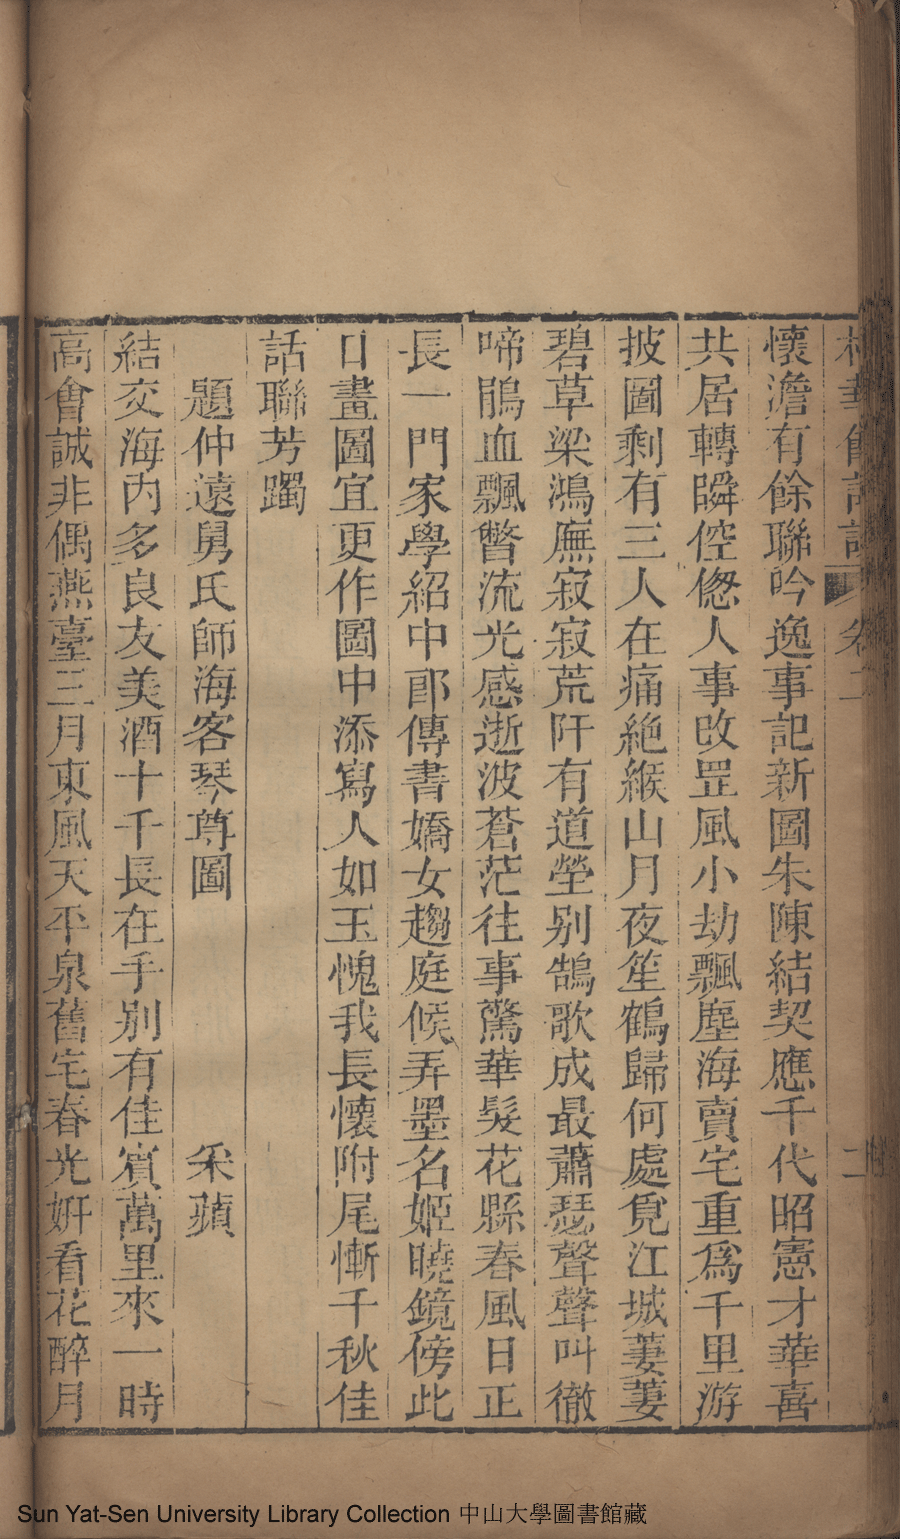 懷澹有餘聯吟逸事記新圖朱陳結契應千代昭憲才華喜
共居轉瞬倥傯人事改罡風小劫飄塵海賣宅重爲千里游
披圖剩有三人在痛絶緱山月夜笙鶴歸何處覓江城萋萋
碧草梁鴻廡寂寂荒阡有道塋别鵠歌成最蕭瑟聲聲叫徹
啼鵑血飄瞥流光感逝波蒼茫往事驚華髮花縣春風日正
長一門家學紹中郎傳書嬌女趨庭候弄墨名姬曉鏡傍此
日畫圖宜更作圖中添寫人如玉愧我長懷附尾慚千秋佳
話聯芳躅
題仲遠舅氏師海客琴尊圖 采蘋
結交海内多良友美酒十千長在手别有佳賓萬里來一時
高會誠非偶燕臺三月東風天平泉舊宅春光妍看花醉月
卷二
二
Sun Yat-Sen University Library Collection 中山大學圖書館藏